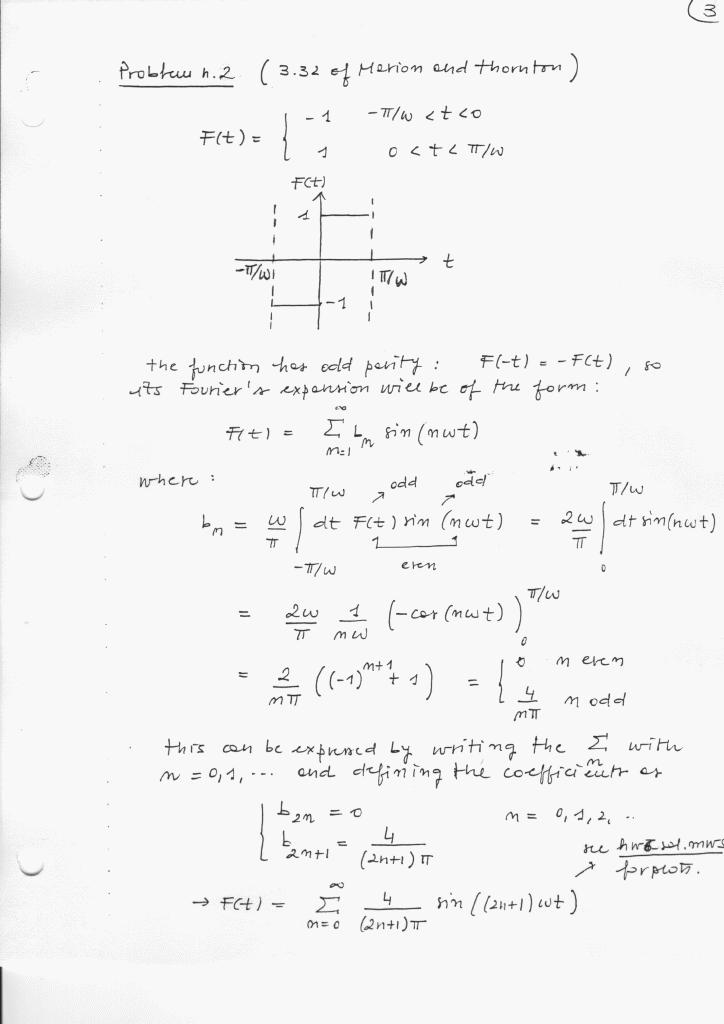 3
Problem n.2 (3.32 of Marion and Thornton)
F(t) = { -1   -π/ω < t < 0
1   0 < t < π/ω
F(t)
1
-π/ω   π/ω   t
-1
the function has odd parity : F(-t) = - F(t), so
its Fourier's expansion will be of the form :
F(t) = Σ_{n=1}^{∞} b_n sin(nωt)
where :
odd   odd
b_n = ω/π ∫_{-π/ω}^{π/ω} dt F(t) sin(nωt) = 2ω/π ∫_0^{π/ω} dt sin(nωt)
even
= 2ω/π 1/nω (-cos(nωt))_0^{π/ω}
= 2/nπ ((-1)^{n+1} + 1) = { 0   n even
4/nπ   n odd
this can be expressed by writing the Σ_n with
n = 0,1, ... and defining the coefficients as
b_{2n} = 0   n = 0, 1, 2, ..
b_{2n+1} = 4/(2n+1)π
see
for plots.
→ F(t) = Σ_{n=0}^{∞} 4/(2n+1)π sin((2n+1)ωt)